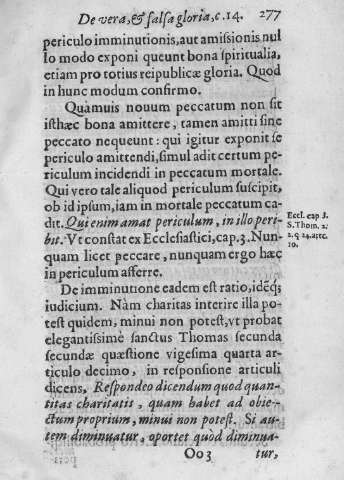 De vera, & falsa gloria, c. 14. 277
periculo imminutionis, aut amissionis nul
lo modo exponi queunt bona spiritualia,
etiam pro totius reipublicæ gloria. Quod
in hunc modum confirmo.
Quàmuis nouum peccatum non sit
isthæc bona amittere, tamen amitti sine
peccato nequeunt: qui igitur exponit se
periculo amittendi, simul adit certum pe-
riculum incidendi in peccatum mortale.
Qui vero tale aliquod periculum suscipit,
ob id ipsum, iam in mortale peccatum ca-
dit. Qui enim amat periculum, in illo peri-
bit. Vt constat ex Ecclesiastici, cap. 3. Nun-
quam licet peccare, nunquam ergo hæc
in periculum afferre.
Eccl. cap 3.
S. Thom. 2.
2. q 24. artc.
10.
De imminutione eadem est ratio, idéq;
iudicium. Nàm charitas interire illa po-
test quidem, minui non potest, vt probat
elegantissimè sanctus Thomas secunda
secundæ quæstione vigesima quarta ar-
ticulo decimo, in responsione articuli
dicens, Respondeo dicendum quod quan-
titas charitatis, quam habet ad obie-
ctum proprium, minui non potest. Si au-
tem diminuatur, oportet quòd diminua-
Oo 3 tur,